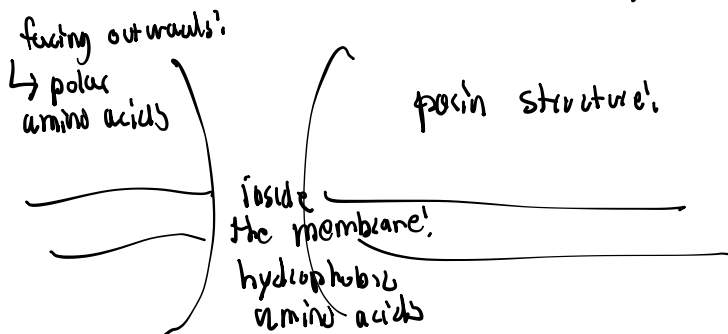 facing outwards:
↳ polar
amino acids
porin structure:
inside
the membrane:
hydrophobic
amino acids